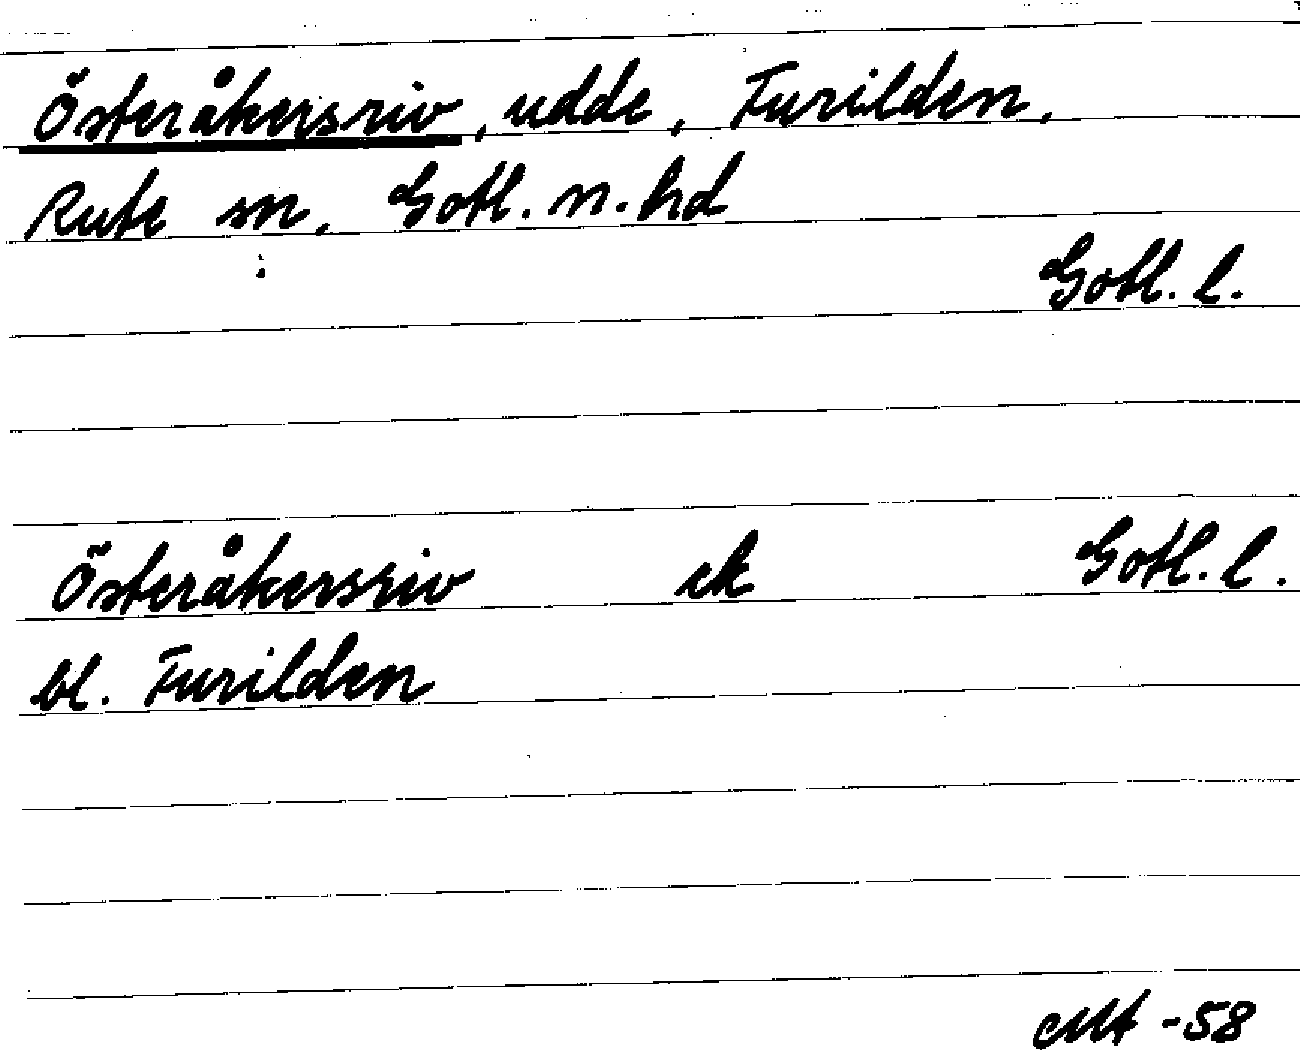 Österåkersriv, udde, Furilden,
Rute sn, Gotl. n. hd
Gotl. l.
Österåkersriv ek Gotl. l.
bl. Furilden
-58